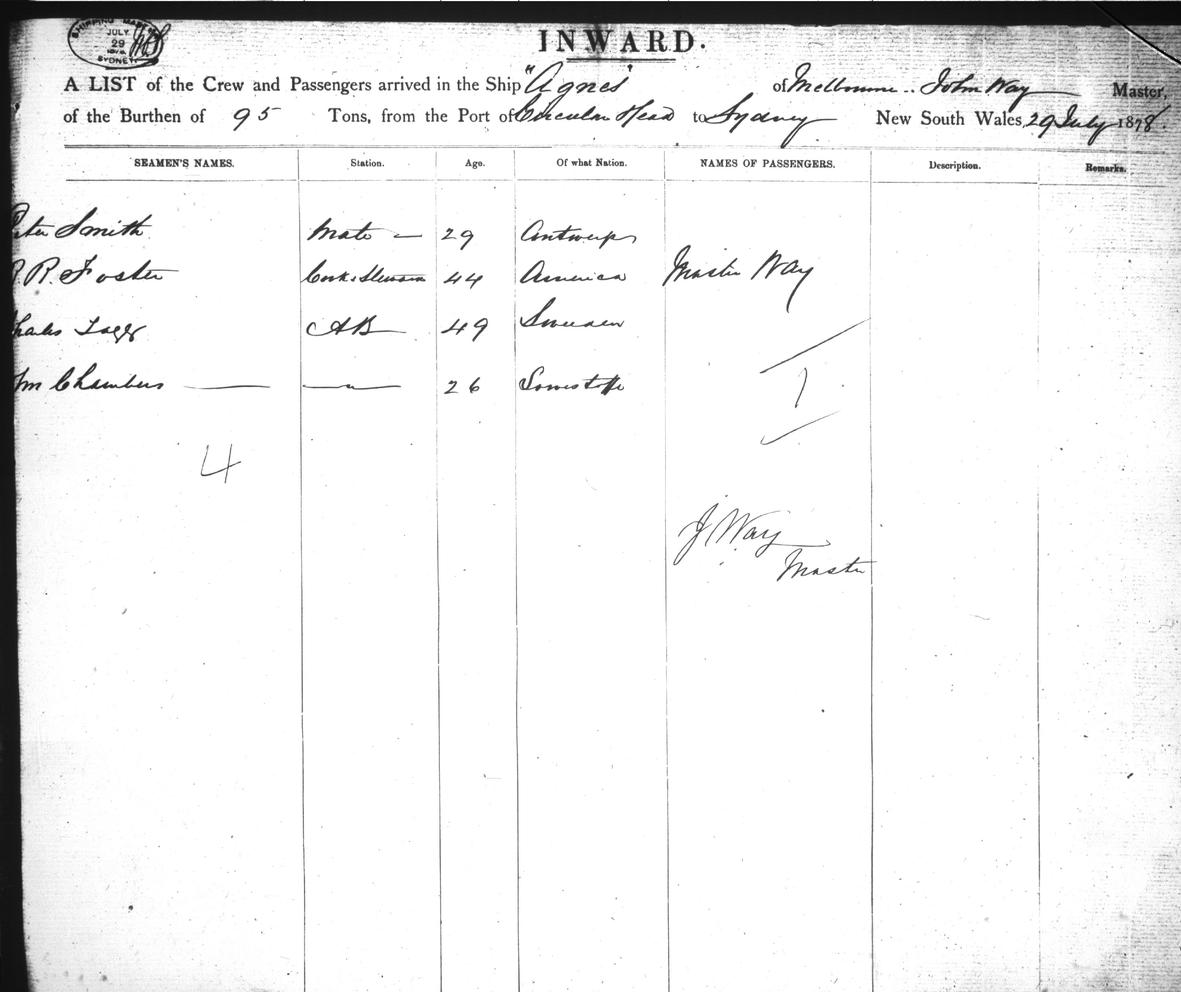 SHIPPING MASTER
JULY
29
1878
SYDNEY
INWARD.
A LIST of the Crew and Passengers arrived in the Ship "Agnes" of Melbourne .. John Way Master,
of the Burthen of 95 Tons, from the Port of Circular Head to Sydney New South Wales, 29 July 1878.
SEAMEN'S NAMES. Station. Age. Of what Nation. NAMES OF PASSENGERS. Description. Remarks.
Peter Smith Mate 29 Antwerp
R. Foster Cook & Steward 44 America Master Way
Charles AB 49 Sweden
Wm Chambers — " — 26 Lowestoffe
1
4
J Way
Master